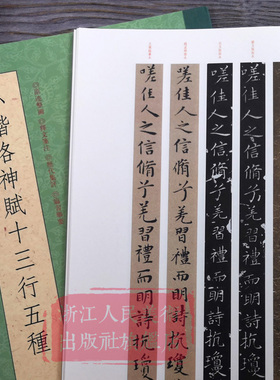 小楷洛神賦十三行五種
嗟佳人之信脩兮羌習禮而明詩抗瓊
嗟佳人之信脩兮羌習禮而明詩抗瓊
嗟佳人之信脩兮羌習禮而明詩抗瓊
嗟佳人之信脩兮羌習禮而明詩抗瓊
浙江人民
出版社旗